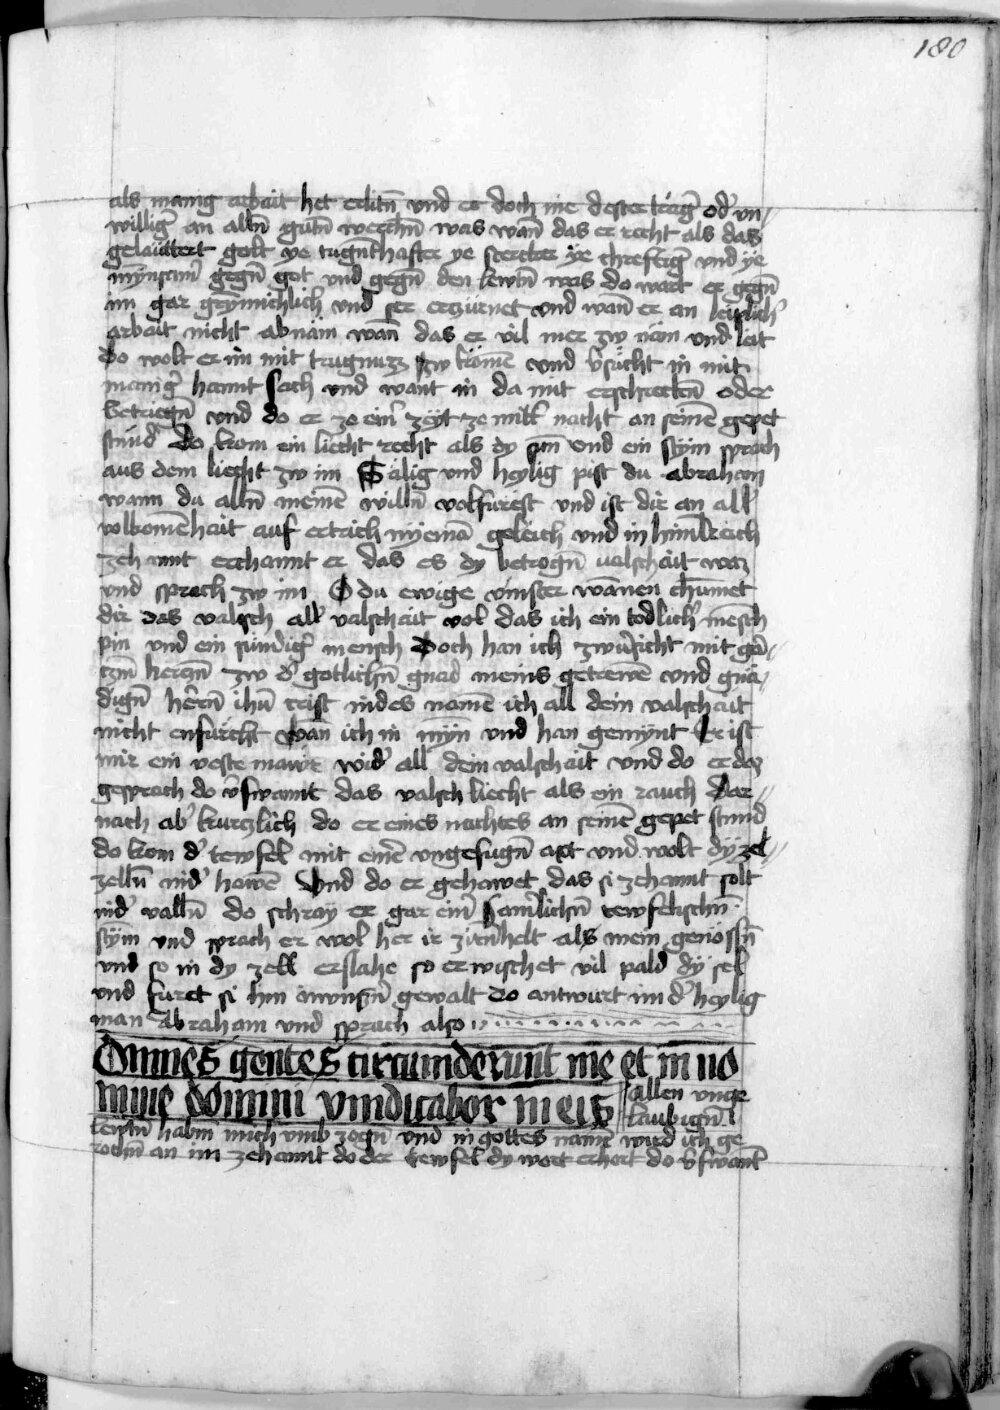 180
als manig arbait het erlitn̄ und er doch nie dester träg̾ od̾ vn//
willig̾ an alln̄ gutn̄ werchn̄ was wan̄ das er recht als das
gelauttert golt ye tugn̄thafter ye stercker ye chreftig̾ vnd ye
mȳnsam̾ gegn̄ got vnd gegn̄ den lewtn̄ was do wart er gegn̄
im gar grymichlich̾ vnd ser erczürnet vnd wan̄ er an leiplich̾
arbait nicht abnam wan̄ das er vil mer zw nam und leit
Do wolt er in mit trugnuzz zw kömē vnd v̾sücht in mit
manig̾ hannt sach vnd want in da mit erschreckn̄ oder
betriegn̄ vnd do er ze ein̾ zeyt ze mitt̾ nacht an seinē gepet
stund̾ Do kom ein liecht recht als dy sun̄ vnd ein stym sprach
aus dem liecht zw im Sälig vnd heylig pist du abraham
wann du alln̄ meinē willn̄ volfürest vnd ist dir an all̾
volkomēhait auf ertrich nyemā geleich vnd in himlreich
zehannt erchannt er das es dy betrogn̄ valschait waz
vnd sprach zw im O du ewige vinster wānen chūmet
dir das valsch all̾ valschait vol das ich ein todlich̾ mēsch
pin vnd ein sündig̾ mensch Doch han ich zwuersicht mit gā//
czn̄ herczn̄ zw d̾ gotlichn̄ gnad meins getrewē vnd gnä//
dign̄ herrn̄ ihū crist in des namē ich all dein valschait
nicht enfürcht wan̄ ich in mȳn vnd han gemynt Er ist
mir ein veste mawr wid̾ all dein valschait vnd do er daz
gesprach do v̾swannt das valsch liecht als ein rauch Dar//
nach ab̾ kurczlich do er eines nachtes an seinē gepet stund
do kom d̾ tewfel mit einē vngefugn̄ axt vnd wolt dy zel//
zelln̄ nid̾ hawē Vnd do er gehawet das si zehannt solt
nid̾ valln̄ do schray er gar ein̾ sämlichn̄ tewfelischn̄
stym vnd sprach er wol her ir zuenhelt als mein genössn̄
vnd so in dy zell erslahe so erwischet vil pald dy sel
vnd furet si hin in vnsn̾ gewalt Do antwurt im d̾ heylig
man Abraham vnd sprach also
Omnes gentes circumderunt me et in no
mine domini vindicabor in eis
allen vnge
laubign̄
lewtn̄ habn̄ mich vmb zogn̄ vnd in gottes name wird ich ge
rochn̄ an im zehannt do der tewfel dy wort erhort do v̾swant